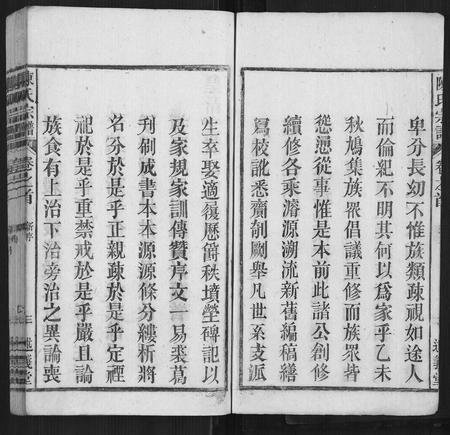 陳氏宗譜
卷之首
述義堂
卑分長幼不惟族類疎視如途人
而倫紀不明其何以爲家乎乙未
秋鳩集族眾倡議重修而族眾皆
慫慂從事惟是本前此諸公創修
續修各乘濬源溯流新舊編稿繕
寫校訛悉齎剞劂舉凡世系支派
生卒娶適履歷箇秩墳塋碑記以
及家規家訓傳贊序文一易裘葛
刋刷成書本本源源條分縷析將
名分於是乎正親疎於是乎定禋
祀於是乎重禁戒於是乎嚴且論
族食有上治下治旁治之異論喪
陳氏宗譜
卷之首
新序
三
述義堂